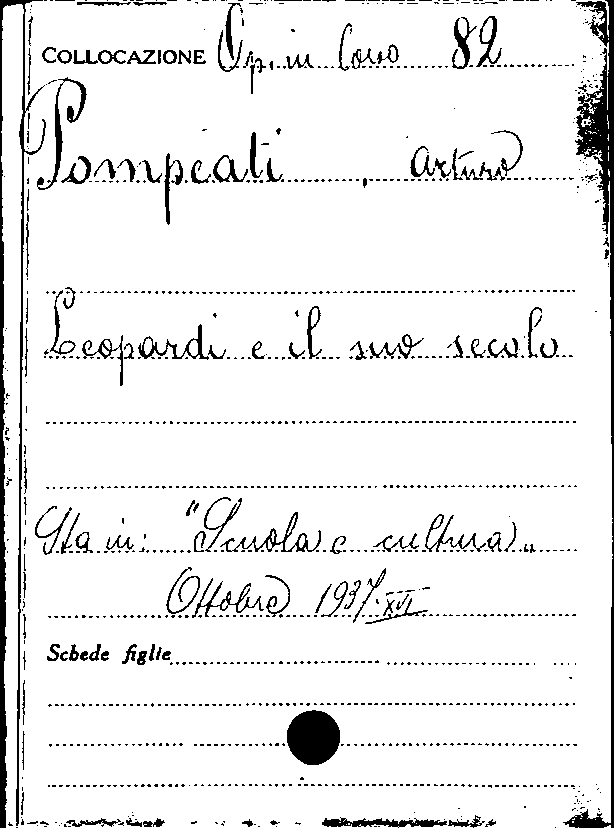 COLLOCAZIONE Op. in Corso 82
Pompeati, Arturo
Leopardi e il suo secolo
Sta in: "Scuola e cultura„
Ottobre 1937.XVI
Schede figlie